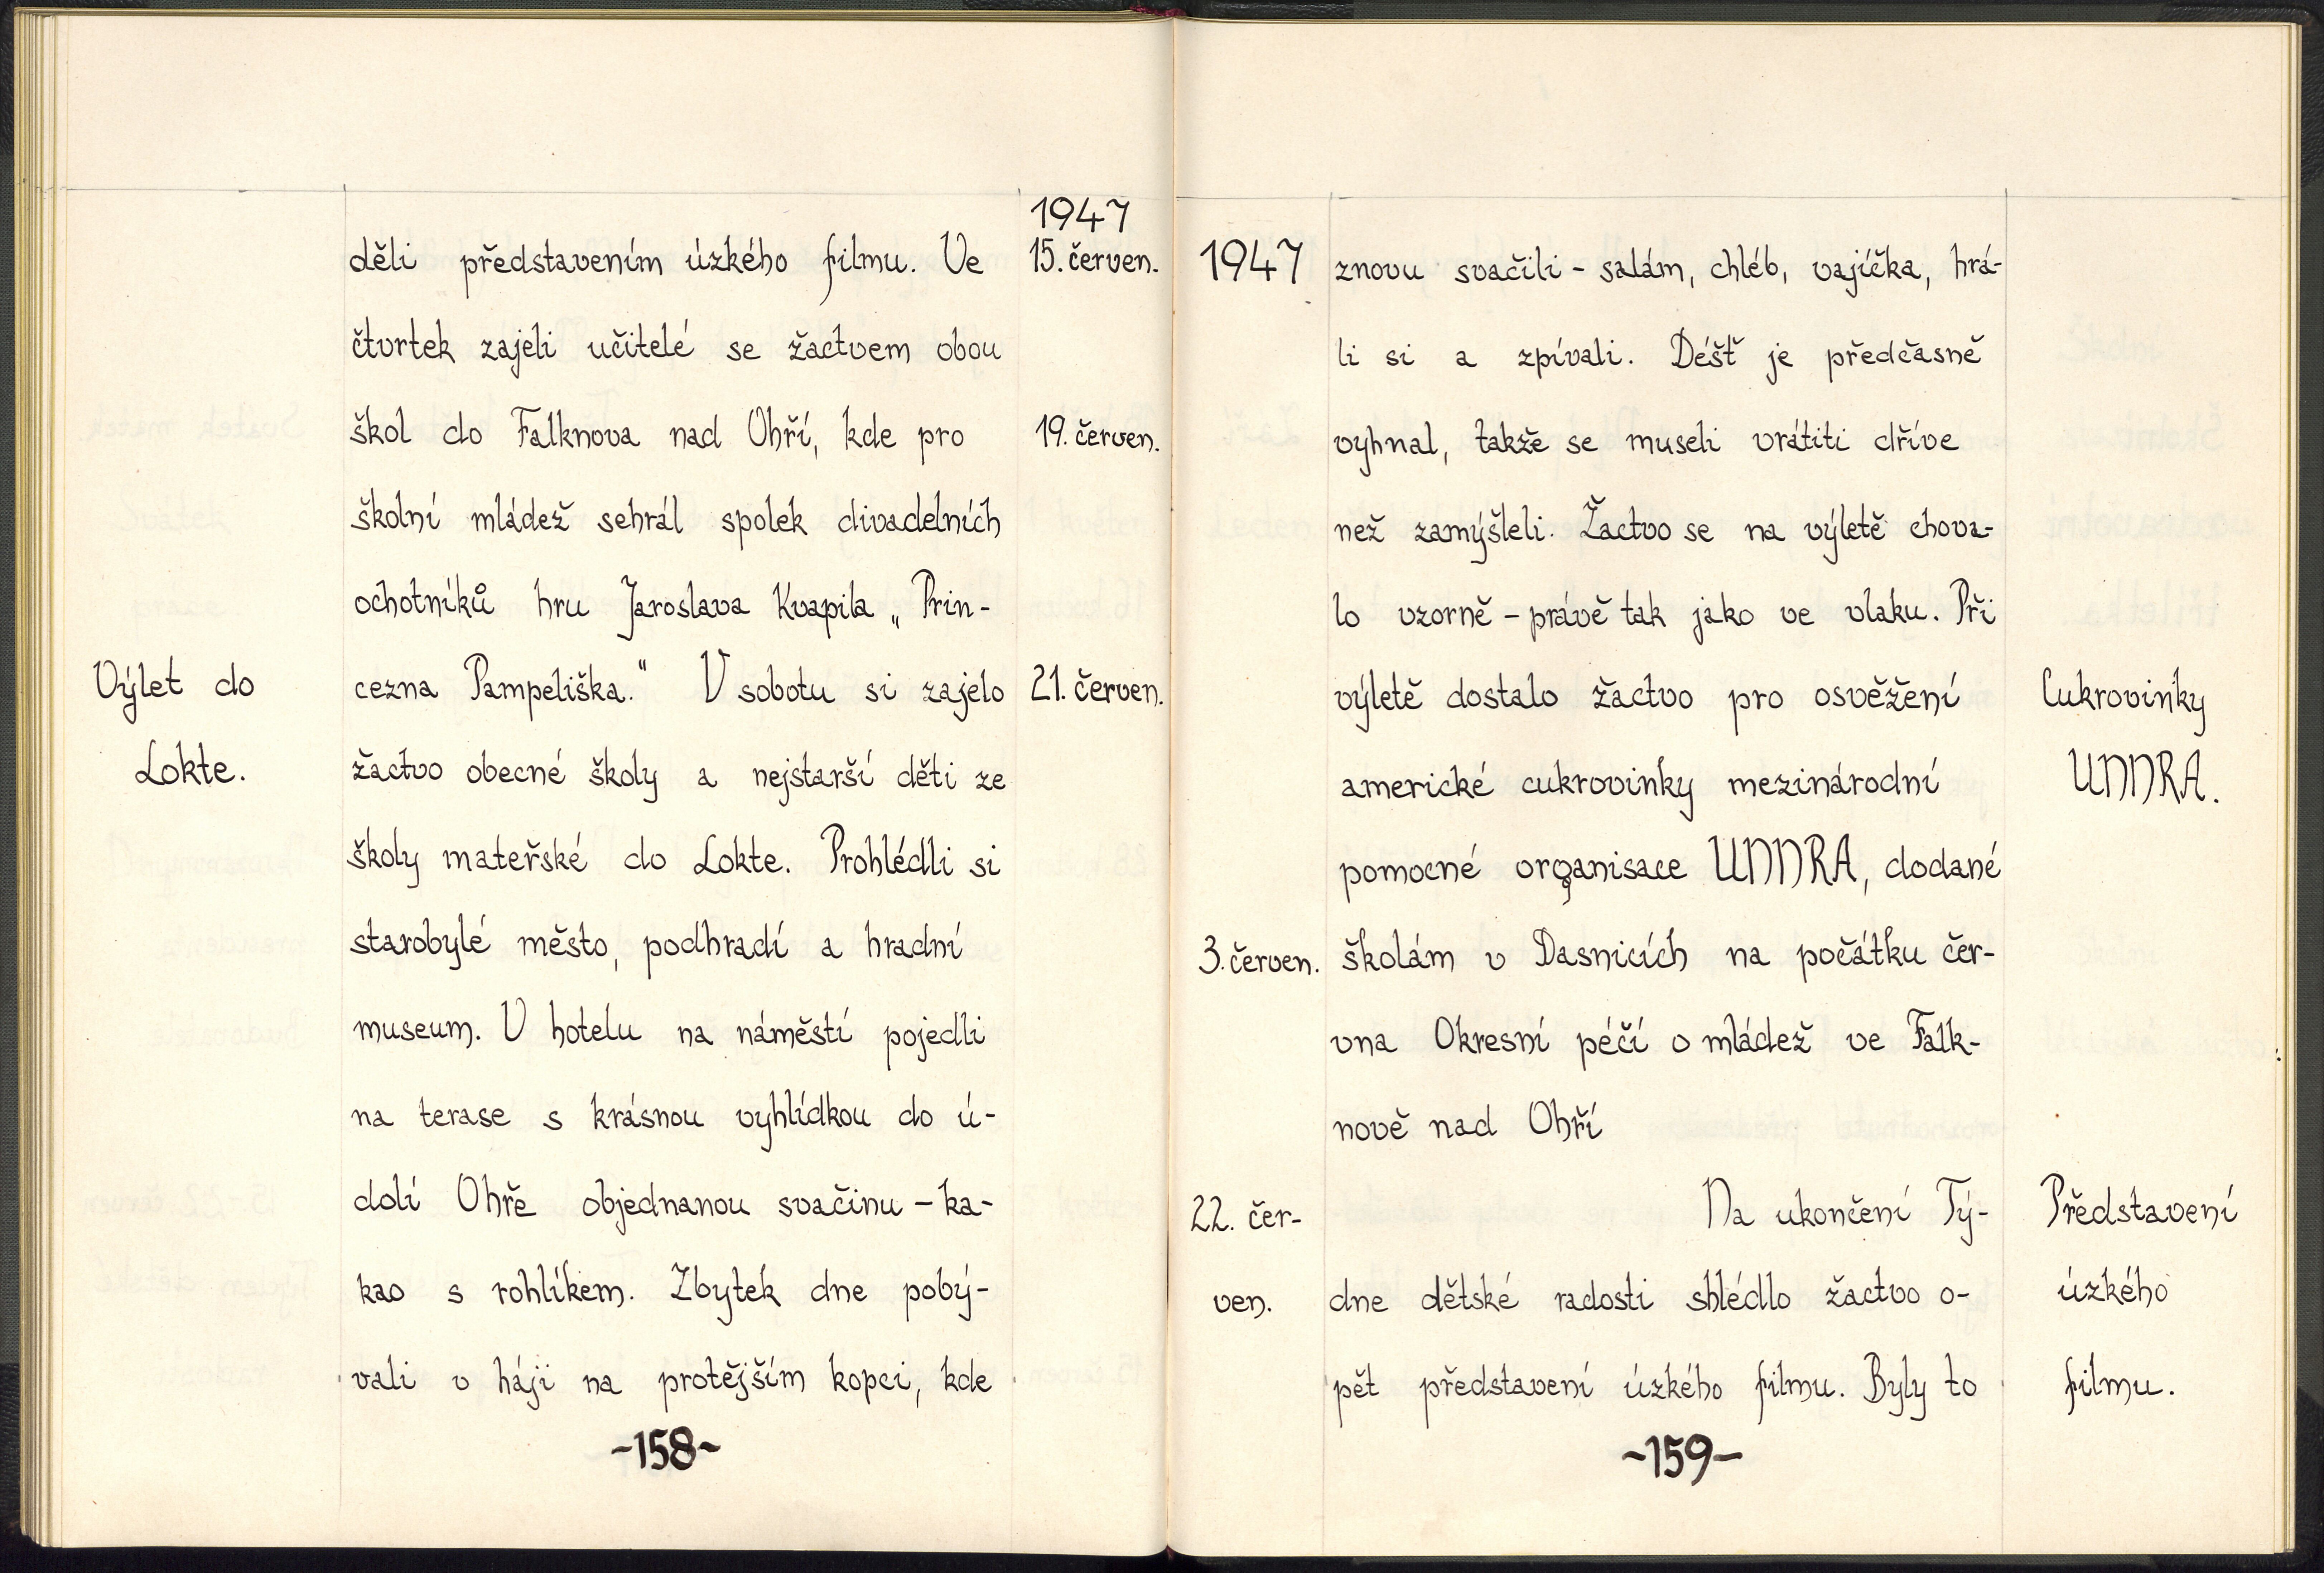 1947
děli představením úzkého filmu. Ve 15. červen.
čtvrtek zajeli učitelé se žactvem obou
škol do Falknova nad Ohří, kde pro 19. červen.
školní mládež sehrál spolek divadelních
ochotníků hru Jaroslava Kvapila „Prin-
Výlet do cezna Pampeliška." V sobotu si zajelo 21. červen.
Lokte. žactvo obecné školy a nejstarší děti ze
školy mateřské do Lokte. Prohlédli si
starobylé město, podhradí a hradní
museum. V hotelu na náměstí pojedli
na terase s krásnou vyhlídkou do ú-
dolí Ohře objednanou svačinu – ka-
kao s rohlíkem. Zbytek dne pobý-
vali v háji na protějším kopci, kde
-158-
1947 znovu svačili - salám, chléb, vajíčka, hrá-
li si a zpívali. Déšť je předčasně
vyhnal, takže se museli vrátiti dříve
než zamýšleli. Žactvo se na výletě chova-
lo vzorně – právě tak jako ve vlaku. Při
výletě dostalo žactvo pro osvěžení Cukrovinky
americké cukrovinky mezinárodní UNNRA.
pomocné organisace UNNRA, dodané
3. červen. školám v Dasnicích na počátku čer-
vna Okresní péčí o mládež ve Falk-
nově nad Ohří
22. čer- Na ukončení Tý- Představení
ven. dne dětské radosti shlédlo žactvo o- úzkého
pět představení úzkého filmu. Byly to filmu.
-159-